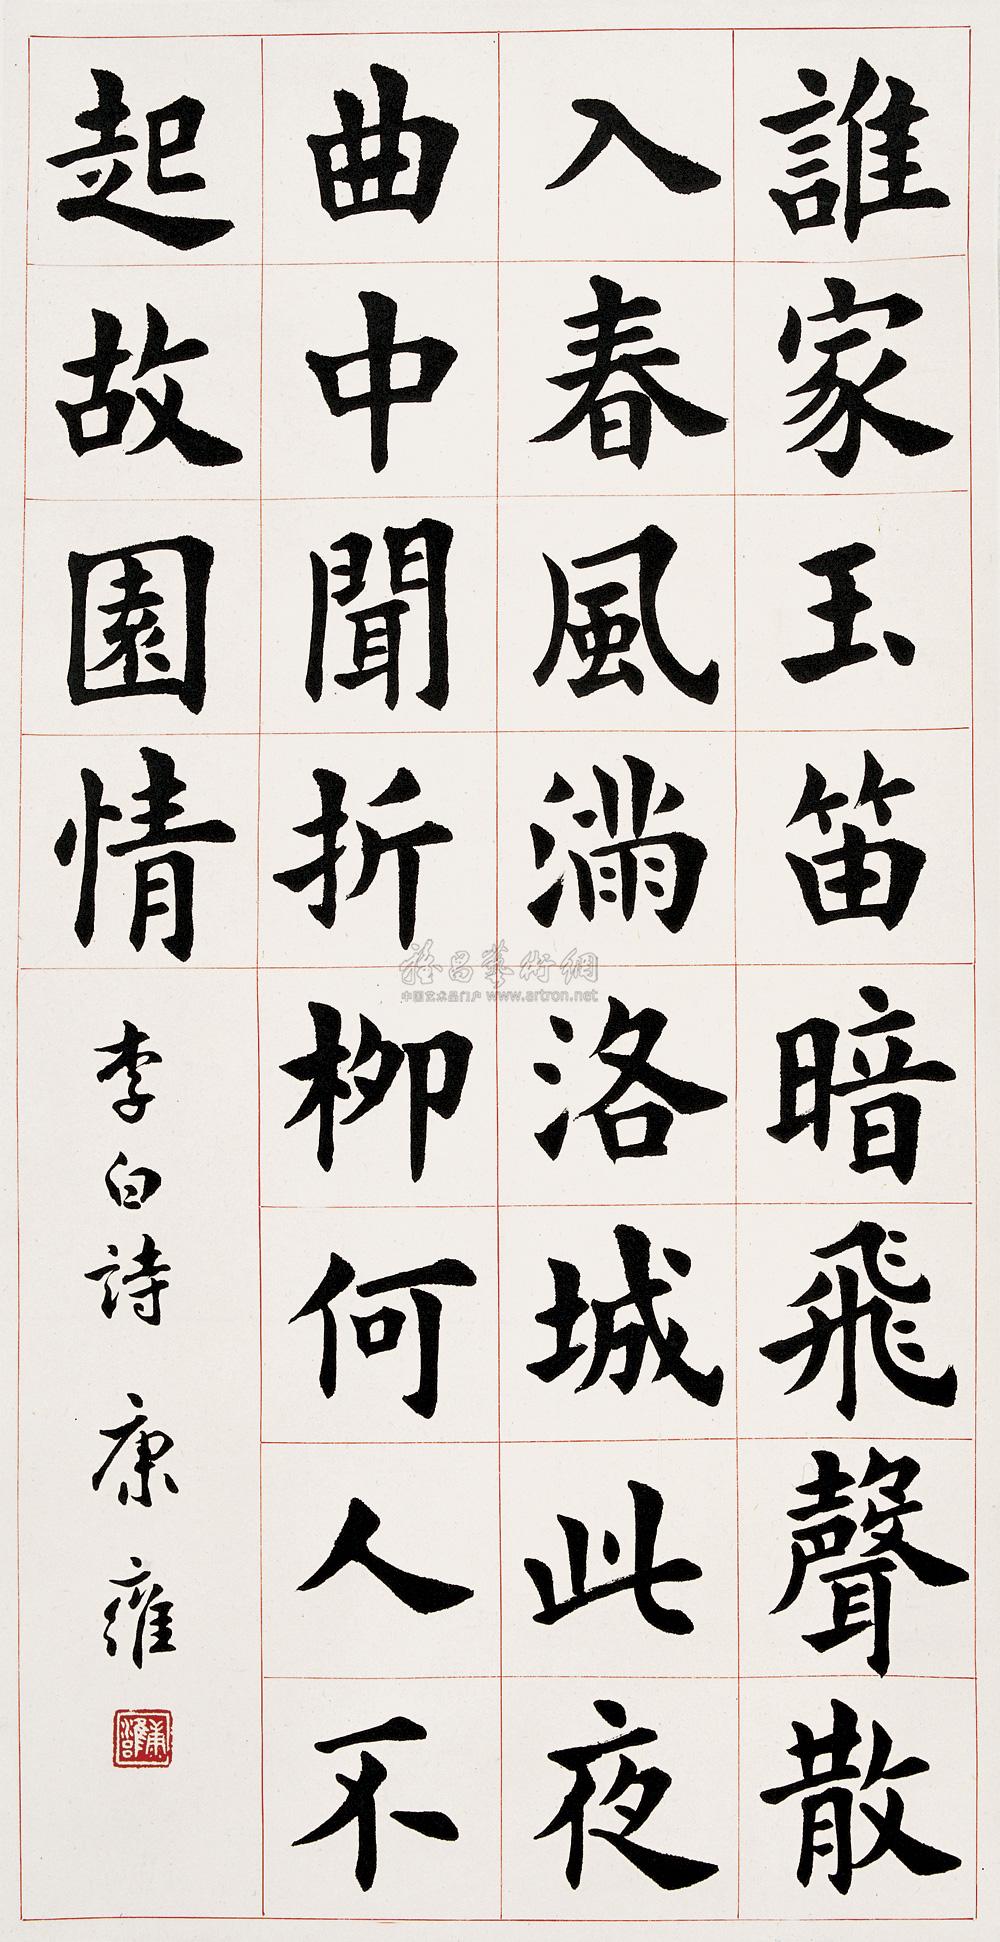 誰家玉笛暗飛聲散
入春風滿洛城此夜
曲中聞折柳何人不
起故園情
李白詩 康雍
雅昌藝術網
中国艺术品门户 www.artron.net